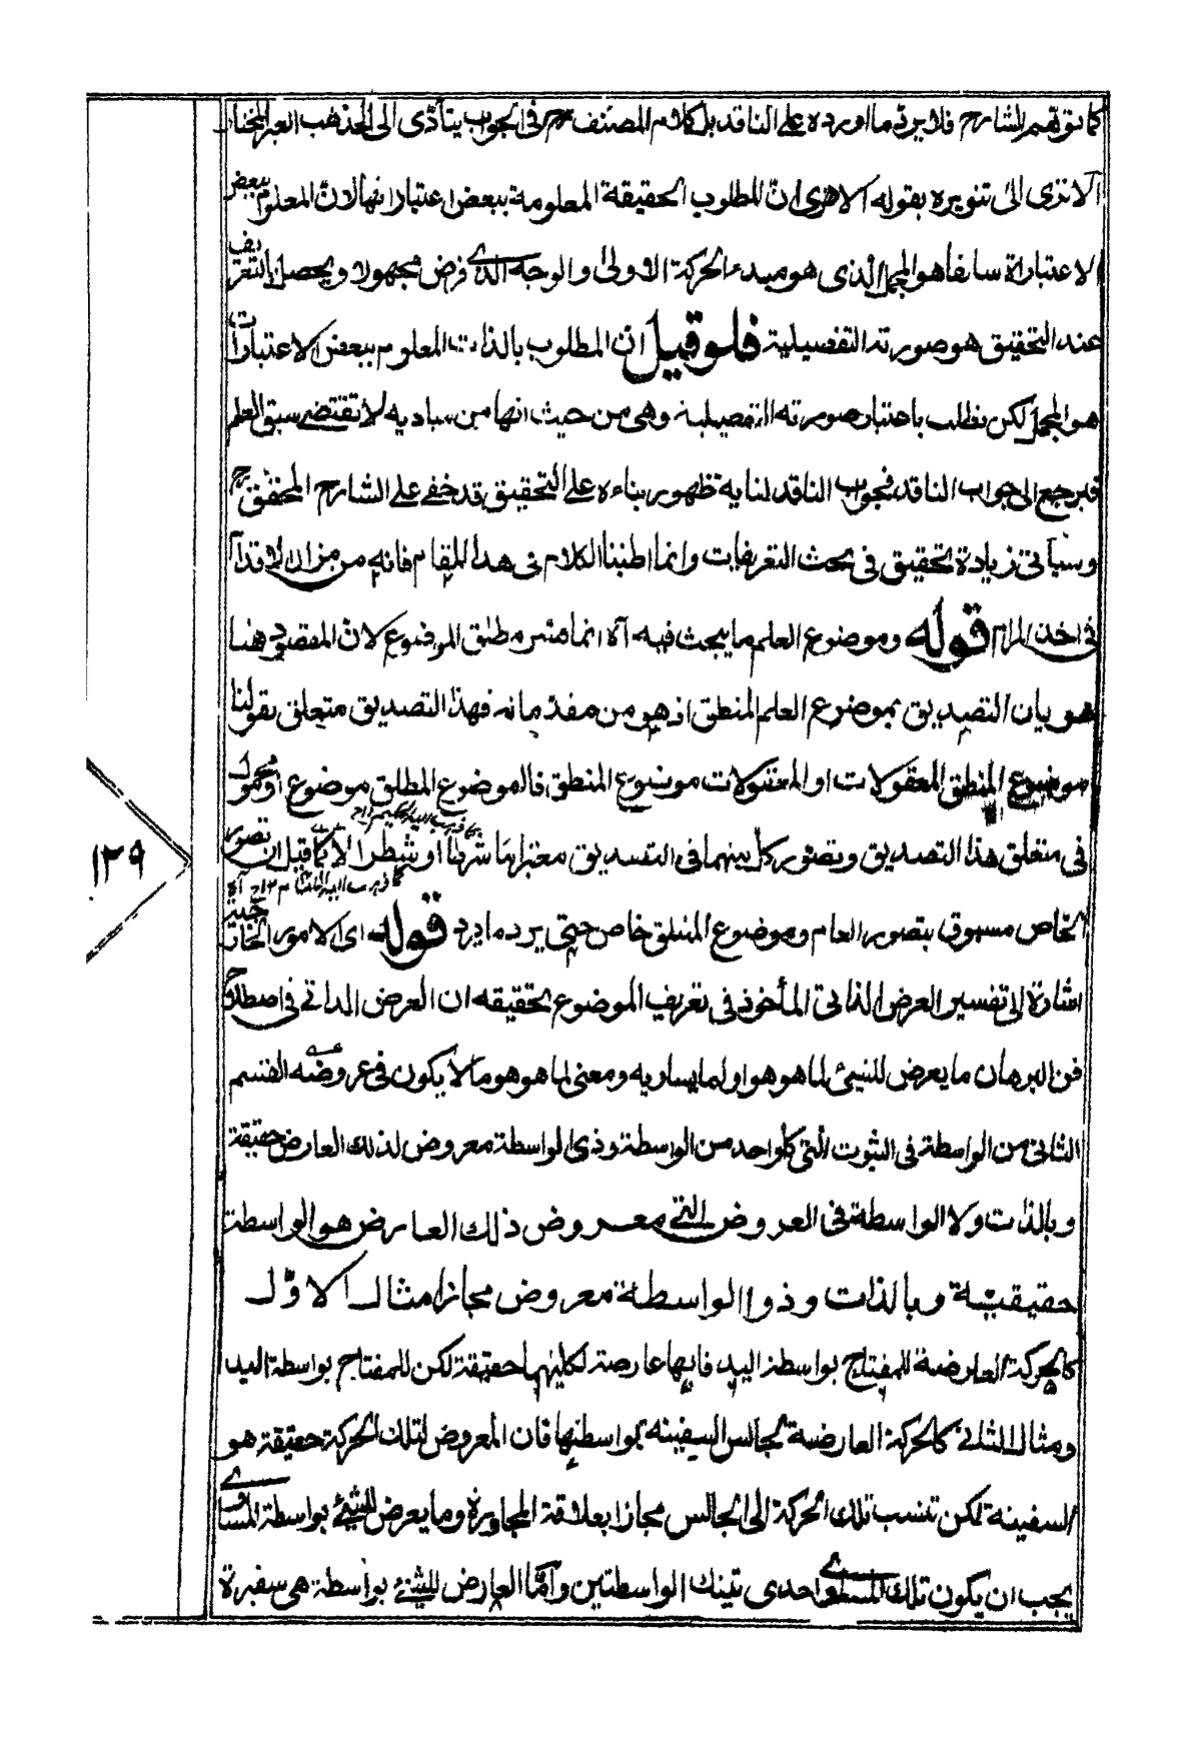 كما توهم الشارح فلا يرد ما اورده على الناقد بل كلام المصنف رح فى الجواب يتأدى الى المذهب الغير المختار
الا ترى الى تنويره بقوله الا ترى ان المطلوب الحقيقة المعلومة ببعض اعتباراتها لان المعلوم ببعض
الاعتبارات سابقا هو المجمل الذى هو مبدء الحركة الاولى والوجه الذى فرض مجهولا ويحصل بالتعريف
عند التحقيق هو صورته التفصيلية فلو قيل ان المطلوب بالذات المعلوم ببعض الاعتبارات
هو المجمل لكن يطلب باعتبار صورته التفصيلية وهى من حيث انها من مباديه لا تقتضى سبق العلم
فيرجع الى جواب الناقد فجواب الناقد لغاية ظهور بناءه على التحقيق قد خفى على الشارح المحقق رح
وسيأتى زيادة تحقيق فى بحث التعريفات وانما اطنبنا الكلام فى هذا المقام فانه من مزال الاقدام
فى اخذ المرام قوله وموضوع العلم ما يبحث فيه آه انما فسر مطلق الموضوع لان المقصود هنا
هو بيان التصديق بموضوع العلم المنطق اذ هو من مقدماته فهذا التصديق متعلق بقولنا
موضوع المنطق المعقولات او المعقولات موضوع المنطق فالموضوع المطلق موضوع او محمول
فى متعلق هذا التصديق وتصور كل بينهما فى التصديق معتبر اما شرطا او شطرا لا كما قيل ان تصور
الخاص مسبوق بتصور العام وموضوع المنطق خاص حتى يرد ما يرد قوله اى الامور الخارجية آه
اشارة الى تفسير العرض الذاتى المأخوذ فى تعريف الموضوع تحقيقه ان العرض الذاتى فى اصطلاح
فن البرهان ما يعرض للشيئ لما هو هو او لما يساويه ومعنى لما هو هو ما لا يكون فى عروضه القسم
الثانى من الواسطة فى الثبوت التى كلواحد من الواسطة وذى الواسطة معروض لذلك العارض حقيقة
وبالذات ولا الواسطة فى العروض التى معروض ذلك العارض هو الواسطة
حقيقة وبالذات وذو الواسطة معروض مجازا مثال الاول
كالحركة العارضة للمفتاح بواسطة اليد فانها عارضة لكليهما حقيقة لكن للمفتاح بواسطة اليد
ومثال الثانى كالحركة العارضة لجالس السفينة بواسطتها فان المعروض لتلك الحركة حقيقة هو
السفينة لكن تنسب تلك الحركة الى الجالس مجازا بعلاقة المجاورة وما يعرض للشيئ بواسطة المساوى
يجب ان يكون تلك المساوى احدى تينك الواسطتين واما العارض للشيئ بواسطة هى سفيرة
١٣٩